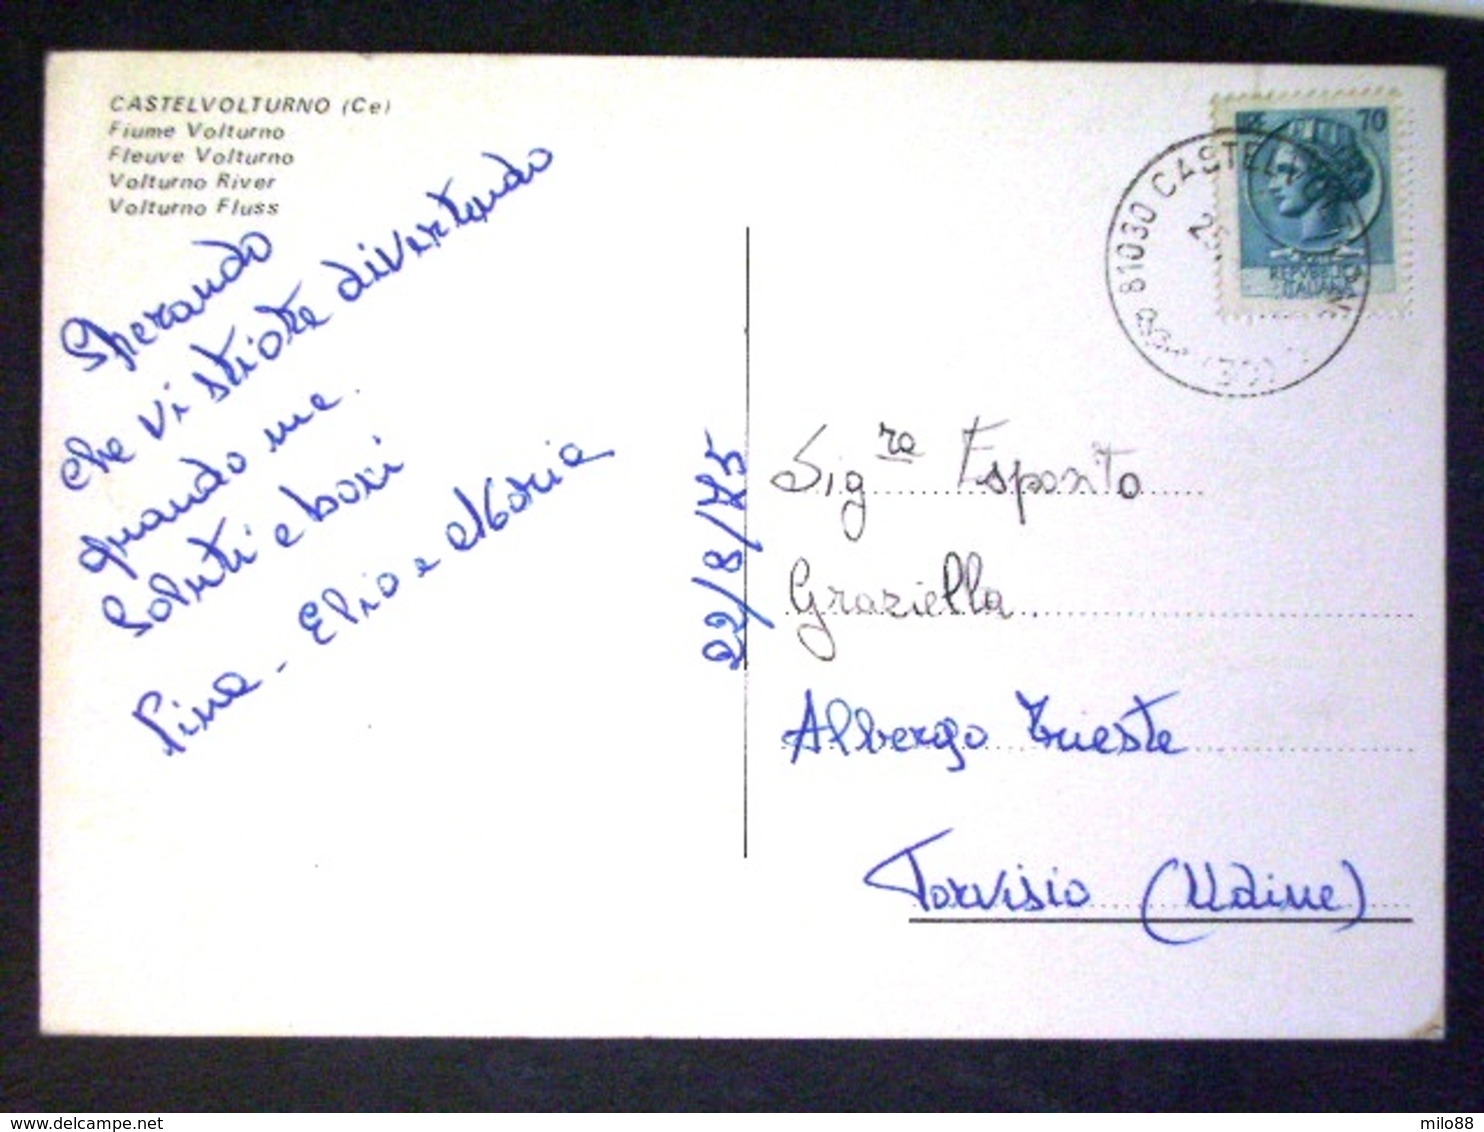 CASTELVOLTURNO (Ce)
Fiume Volturno
Fleuve Volturno
Volturno River
Volturno Fluss
Sperando
che vi stiate divertendo
quando me.
Saluti e baci
Pina - Elio e Maria
22/8/75
LIRE 70
REPVBBLICA
ITALIANA
81030 CASTEL VOLTURNO
(CE)
Sig.ra Esposito
Graziella
Albergo Trieste
Tarvisio (Udine)
milo88